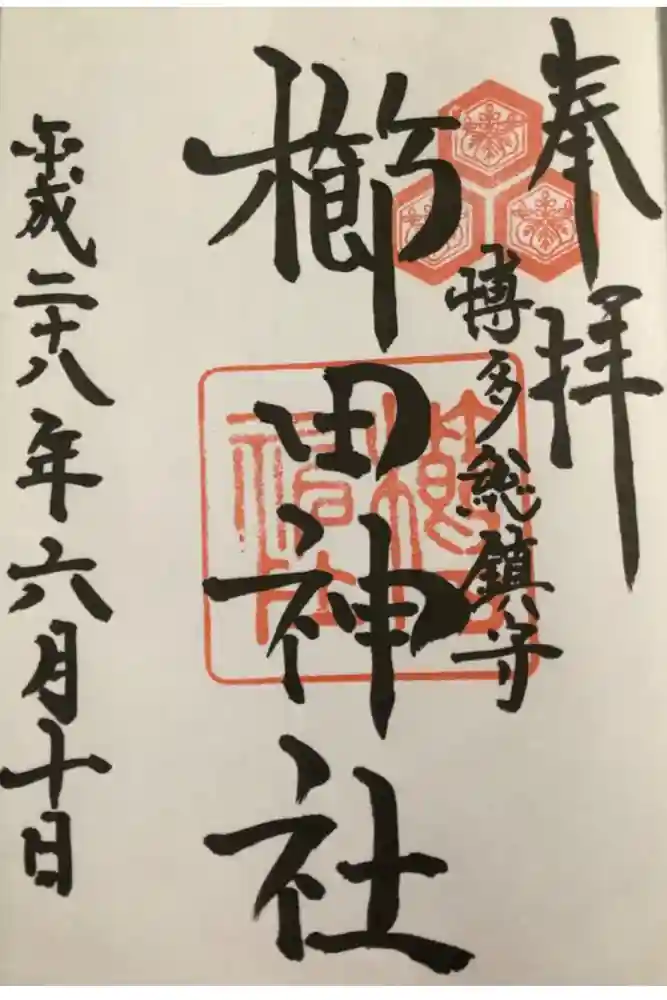 奉拝
博多総鎮守
櫛田神社
櫛田
神社
平成二十八年六月十日